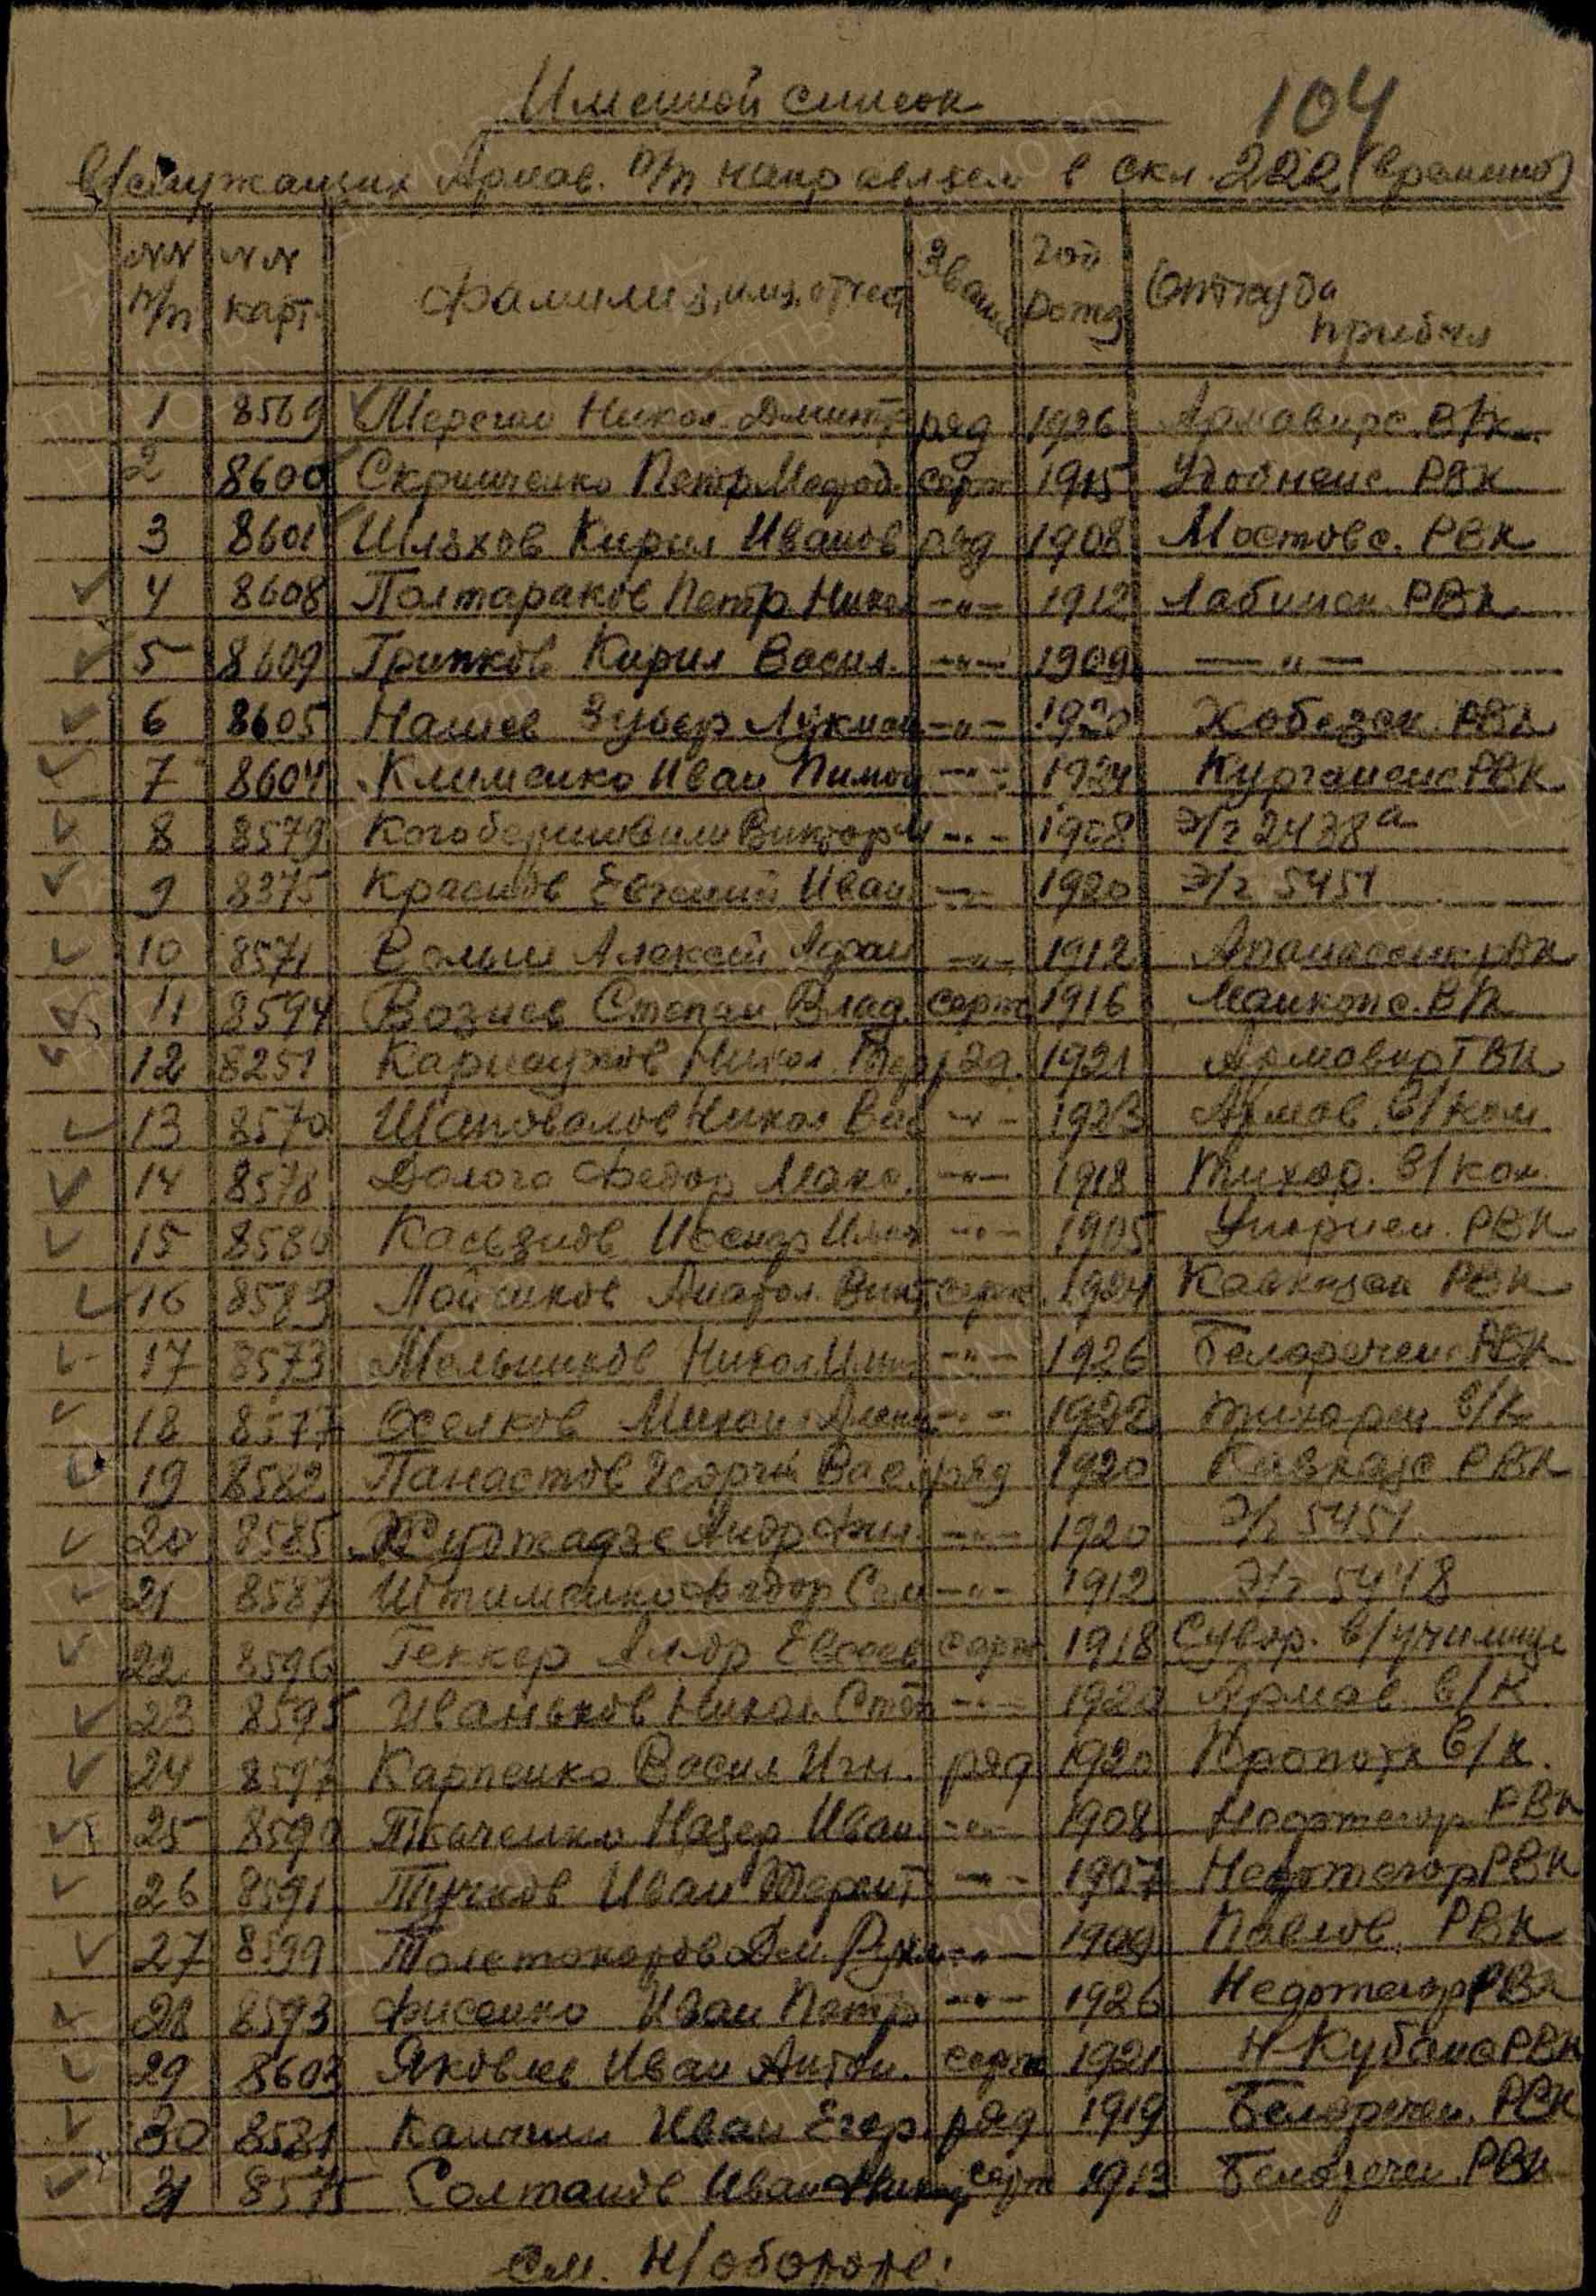 Именной список
104
в/служащих Армав. п/п направляем в скл. 222 (времен)
NN п/п NN карт. Фамилия, имя, отчес Звание год рожд Откуда прибыл
1 8569 Никол. Дмитр ряд 1926 Армавирс. В/К
2 8600 Скрипченко Петр Мефод. серж 1915 Удобненс. РВК
3 8601 Шляхов Кирил Иванов ряд 1908 Мостовс. РВК
4 8608 Полтараков Петр Никол -"- 1912 Лабинск РВК
5 8609 Грипков Кирил Васил. -"- 1909 -"-
6 8605 Нашев Зубер Лукман -"- 1920 Хобезск. РВК
7 8604 Клименко Иван Пимон -"- 1924 Курганенс РВК
8 8579 Виктор -"- 1908 Э/г 2438а
9 8375 Краснов Евгений Иван -"- 1920 Э/г 5451
10 8571 Алексей Афан -"- 1912 РВК
11 8594 Вознев Степан Влад. серж 1916 Майкопс. В/К
12 8251 Карнаухов Никол. ряд. 1921 Армавир ГВК
13 8570 Шаповалов Никол Вас -"- 1923 Армав. в/ком
14 8578 Долого Федор Мака. -"- 1918 Тихор. в/ком.
15 8580 Касьянов -"- 1905 РВК
16 8583 Анатол. Вик серж. 1924 Кавказск РВК
17 8573 Мельников Никол -"- 1926 Белоречен. РВК
18 8577 Оселков Михаи -"- 1922 Тихорец в/к
19 8582 Панастов Георгий Вас. ряд 1920 Кавказс РВК
20 8585 Андр Фил. -"- 1920 Э/г 5451
21 8587 Штименко Федор Сем -"- 1912 Э/г 5448
22 8596 Геккер Ал-др Евсеев серж. 1918 Сувор. в/училище
23 8595 Иваньков Никол. Степ -"- 1920 Армав. в/к
24 8597 Карпенко Васил Игн. ряд 1920 Кропотк в/к.
25 8590 Ткаченко Назар Иван. -"- 1908 РВК
26 8591 Тучков Иван Терент -"- 1907 Нефтегор РВК
27 8599 Толстокоров Дм. -"- 1909 Павлов. РВК
28 8593 Фисенко Иван Петр -"- 1926 Нефтегор РВК
29 8603 Яковлев Иван Антон. серж 1921 Н-Кубанс РВК
30 8581 Иван Егор. ряд 1919 Белоречен. РВК
31 8575 Солтанов Иван серж 1913 Белоречен. РВК
см. н/обороте!